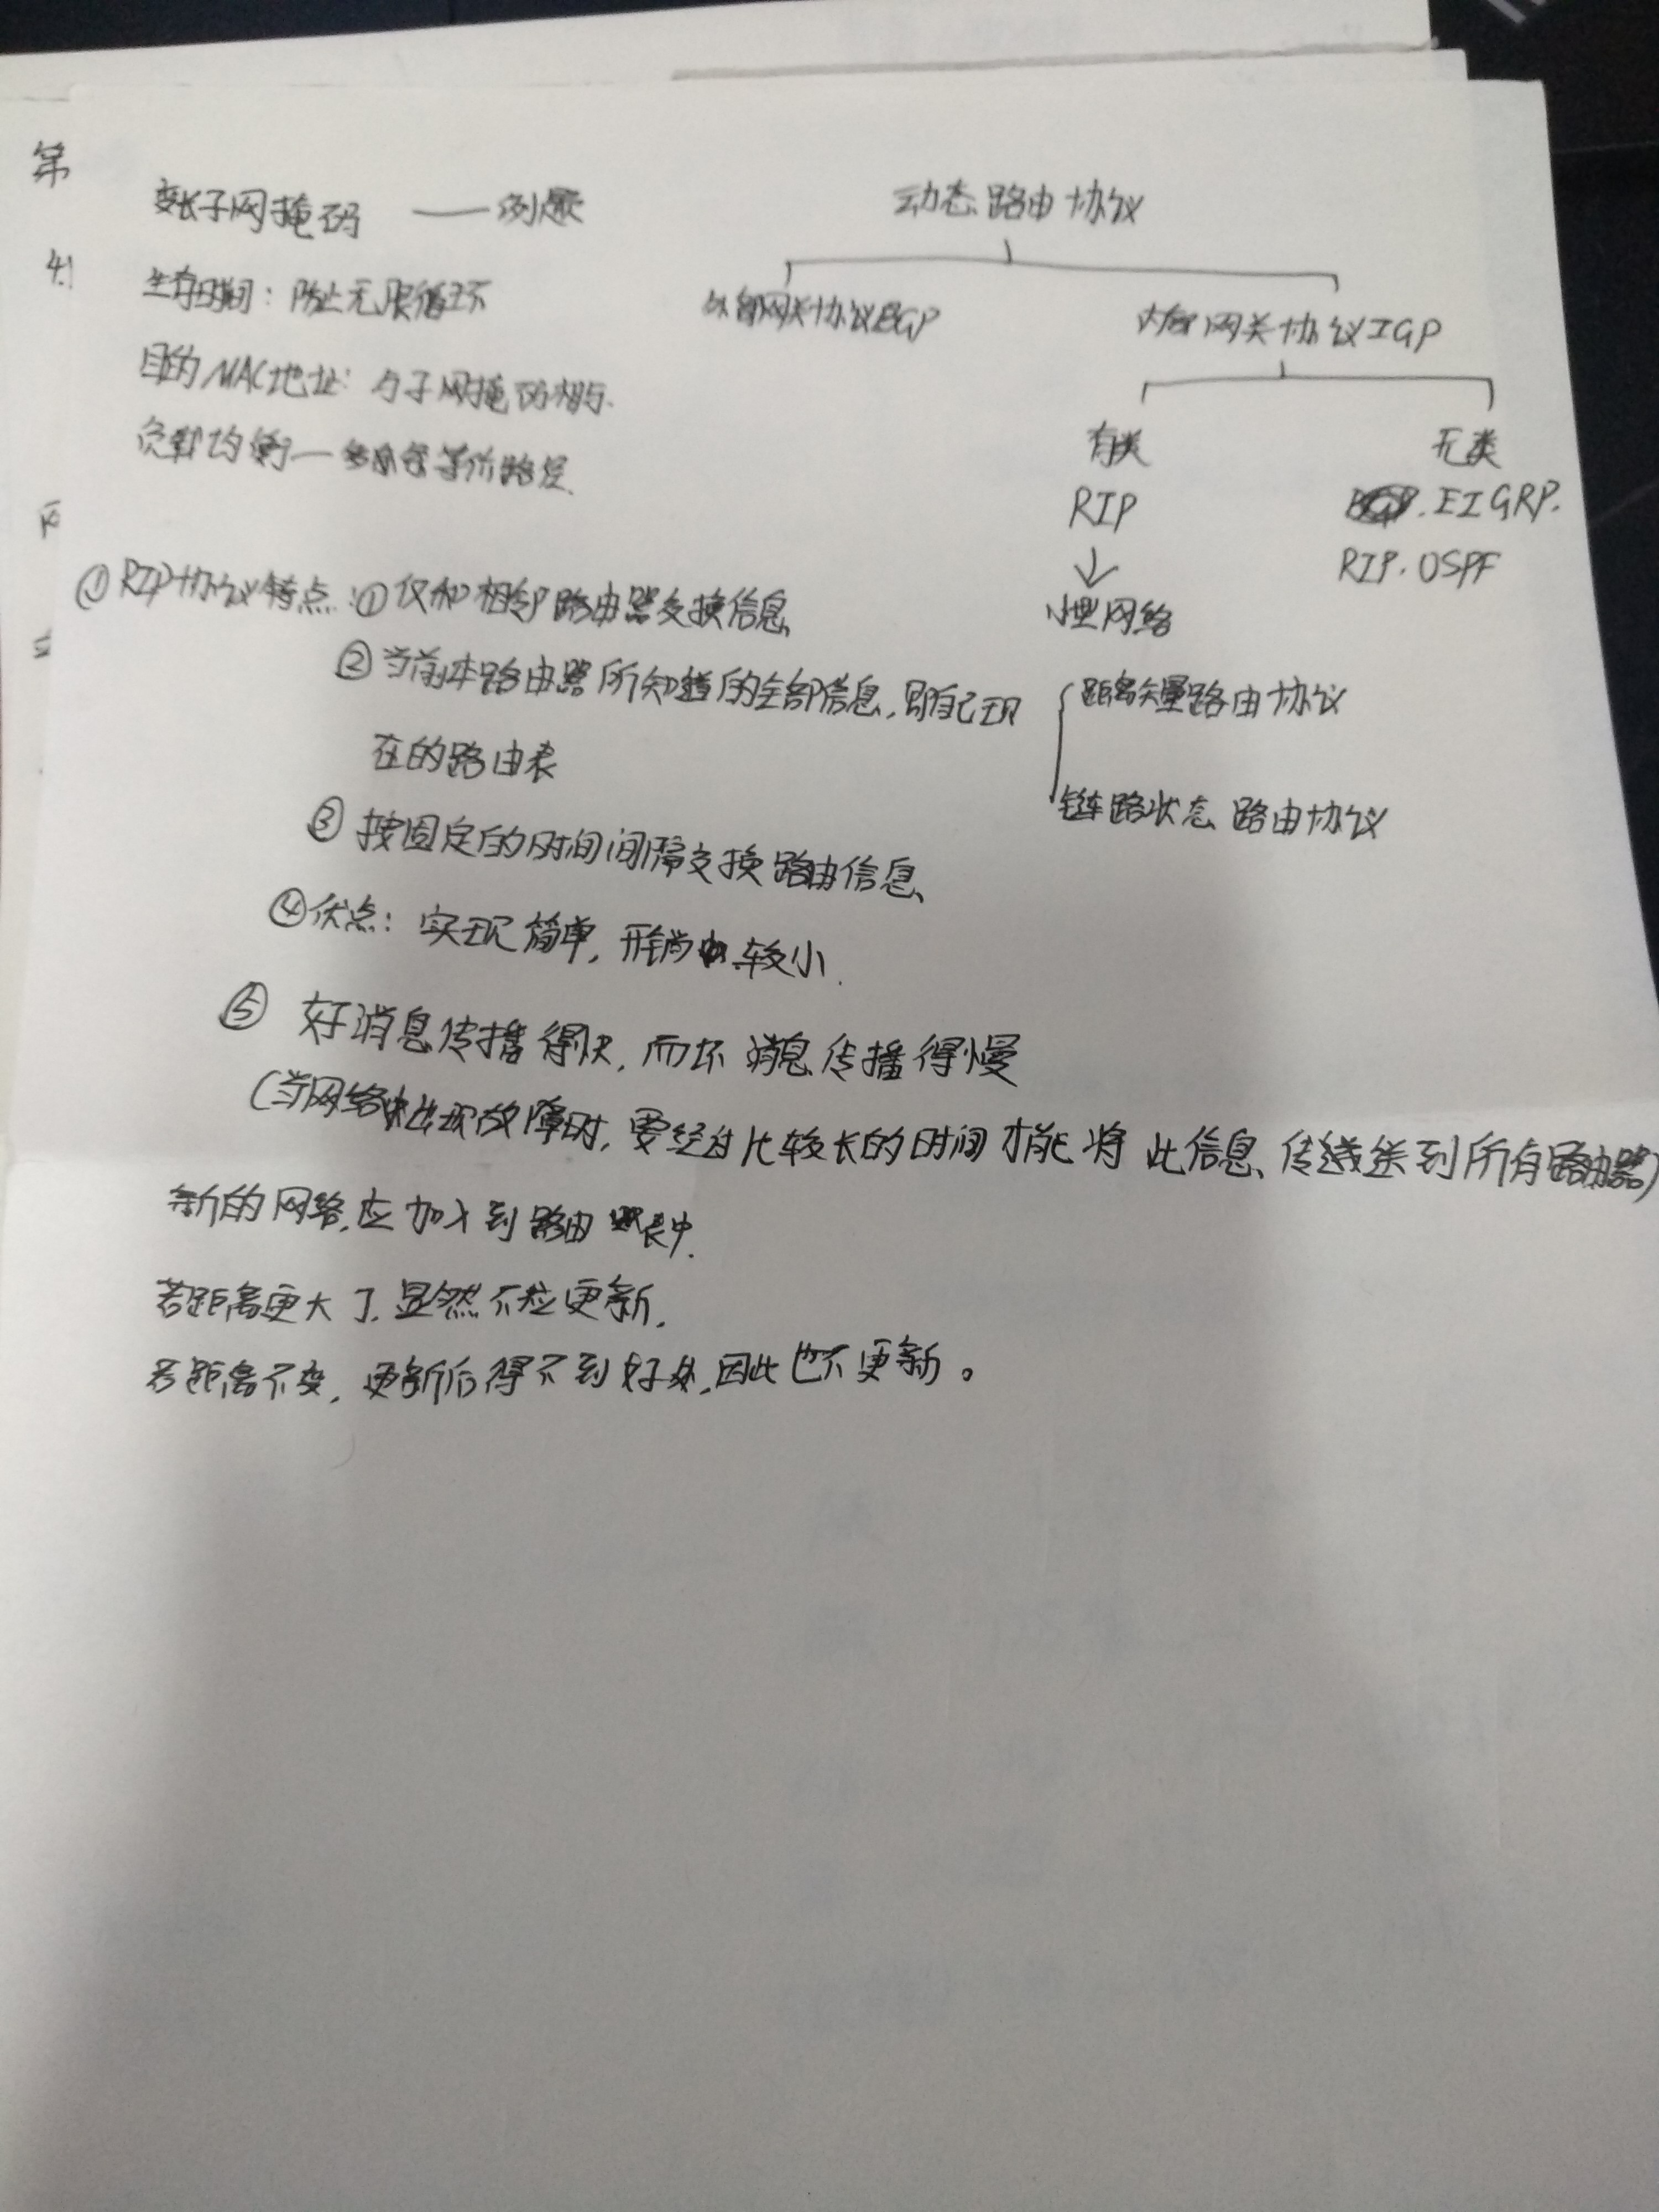 第
4.1
变长子网掩码 —— 例题
生存时间：防止无限循环
目的MAC地址：与子网掩码相与.
负载均衡—等价路径.
动态路由协议
外部网关协议EGP
内部网关协议IGP
有类
无类
RIP
EIGRP.
RIP.OSPF
↓
小型网络
距离矢量路由协议
链路状态路由协议
① RIP协议特点：①仅和相邻路由器交换信息
②当前本路由器所知道的全部信息,即自己现
在的路由表
③ 按固定的时间间隔交换路由信息
④优点：实现简单,开销较小.
⑤ 好消息传播得快,而坏消息传播得慢
(当网络出现故障时,要经过比较长的时间才能将此信息传送到所有路由器)
新的网络,应加入到路由表中.
若距离更大了.显然不应更新.
若距离不变,更新后得不到好处,因此也不更新。